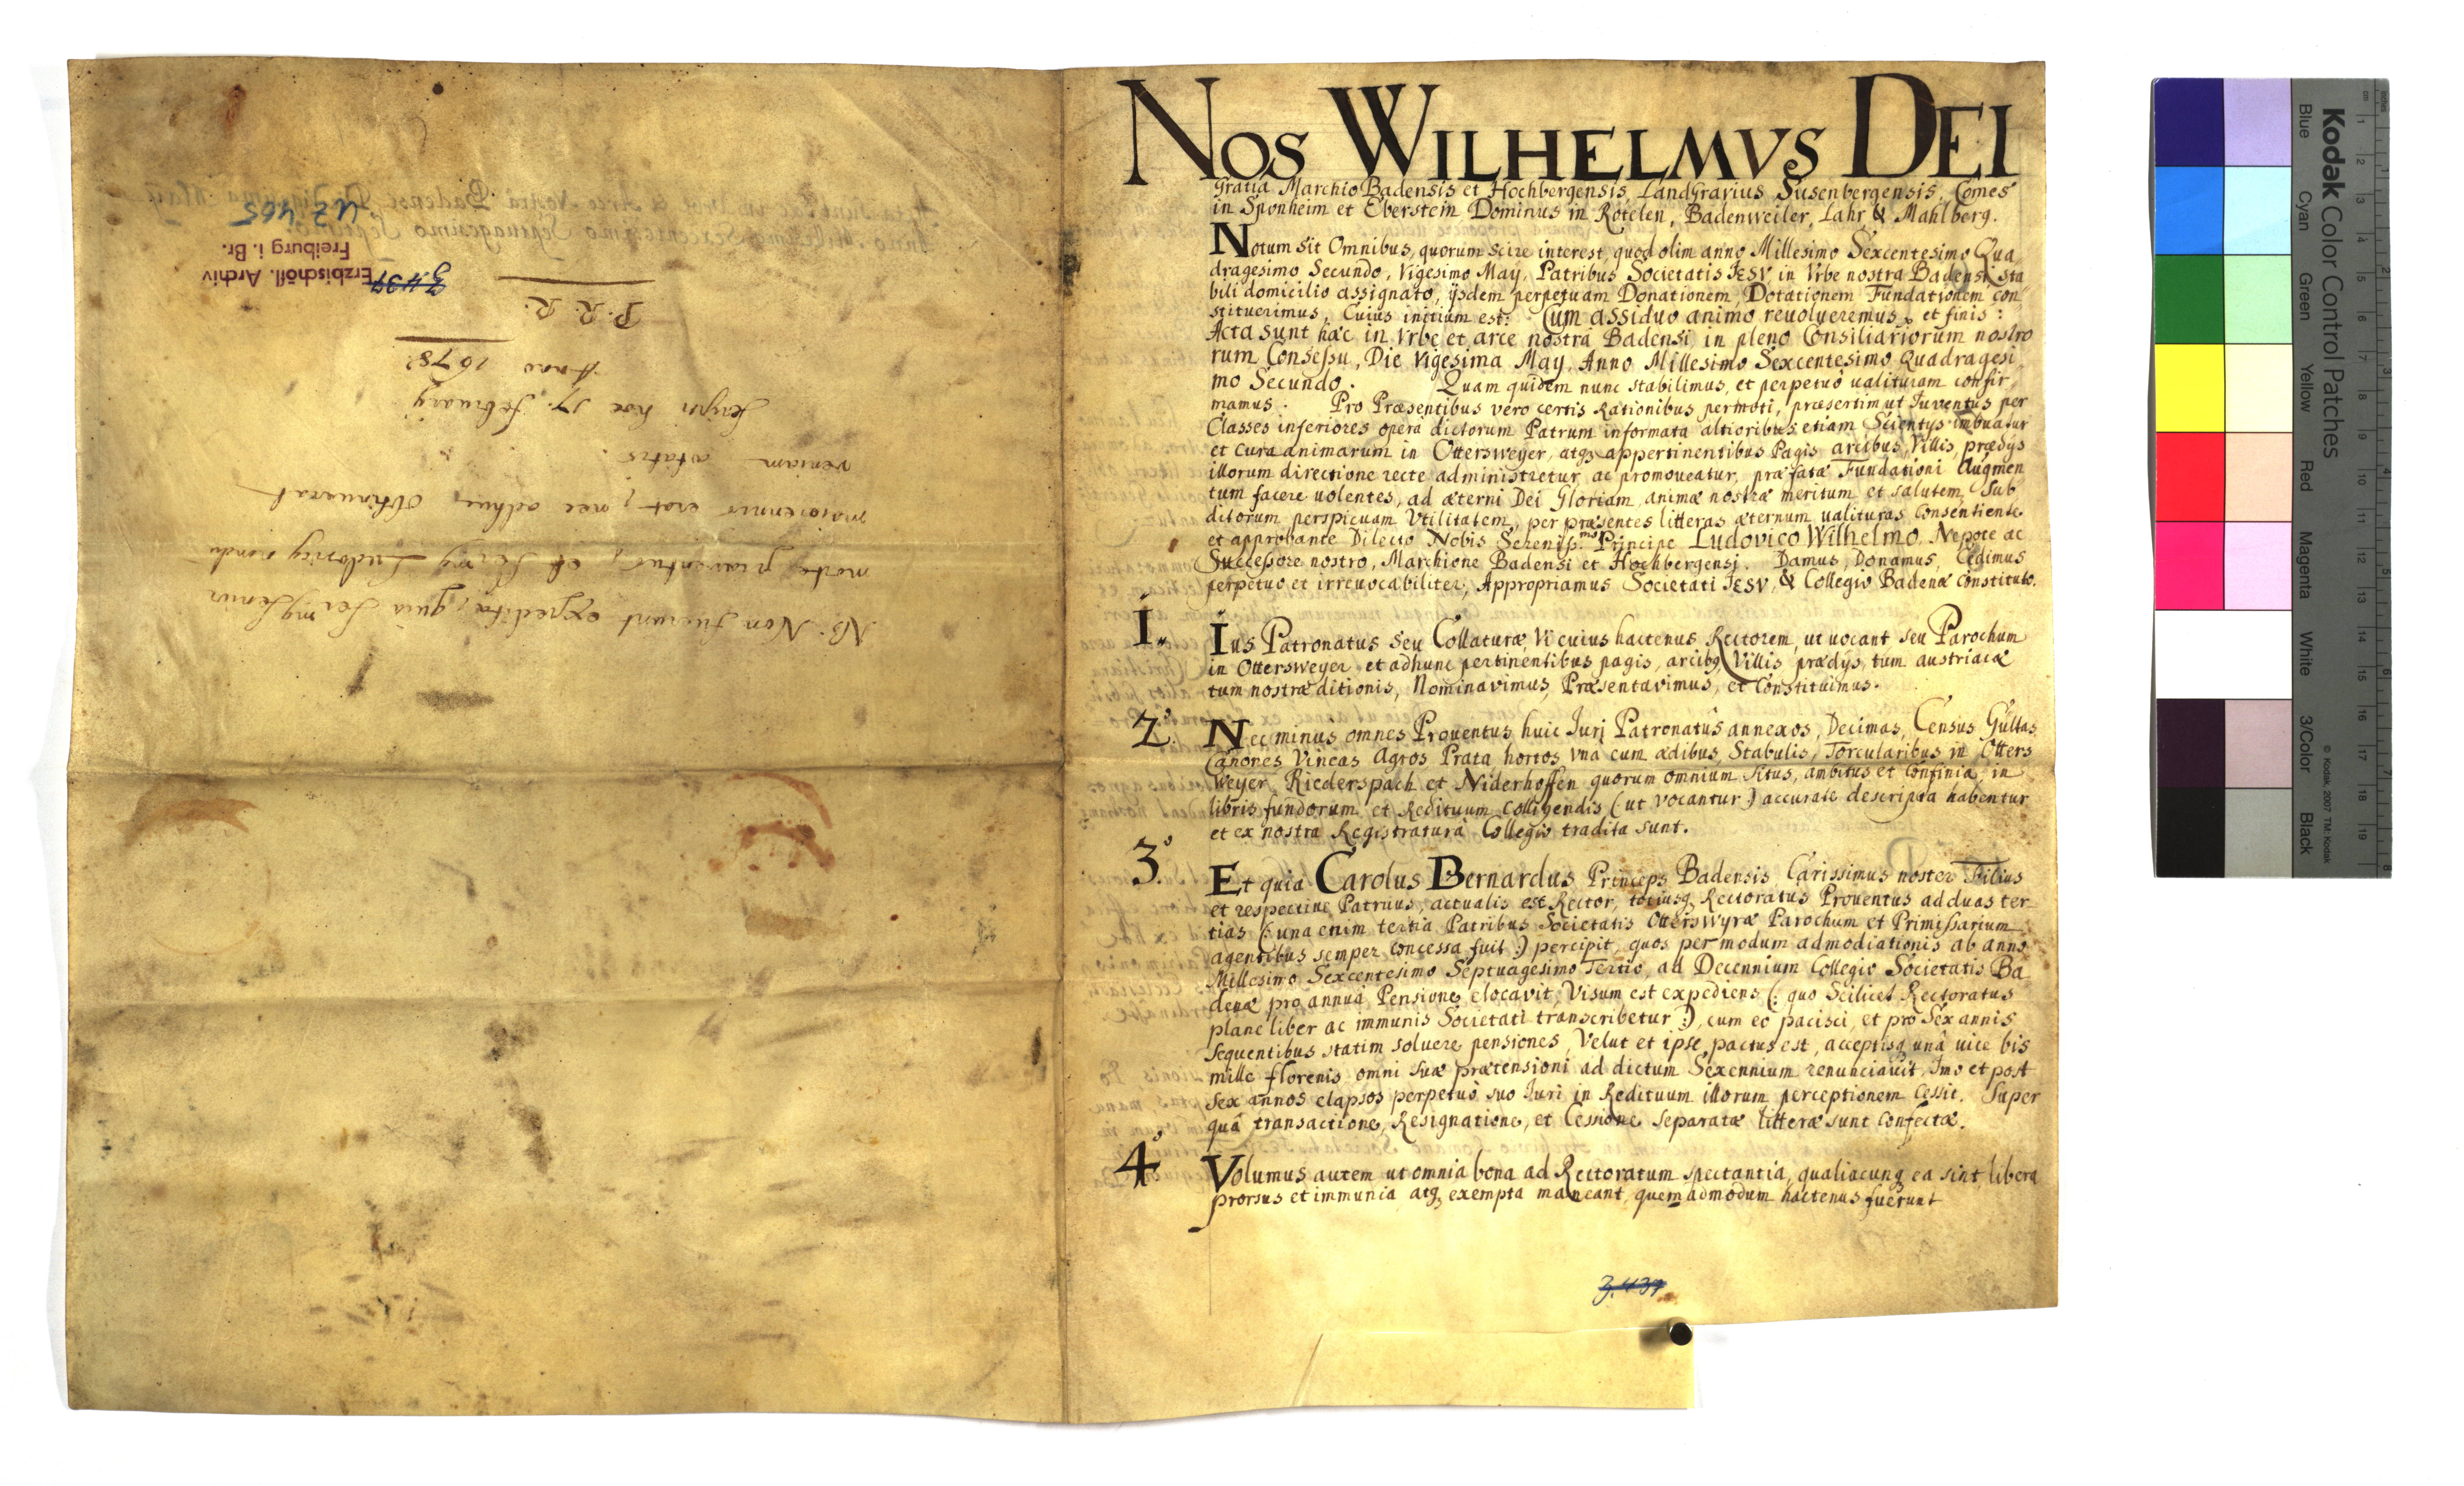 NOS WILHELMVS DEI
gratia Marchio Badensis et Hochbergensis, LandGravius Susenbergensis, Comes
in Sponheim et Eberstein Dominus in Rötelen, Badenweiler, Lahr & Mahlberg.
Notum sit Omnibus, quorum scire interest, quod olim anno Millesimo Sexcentesimo Qua
dragesimo Secundo, Vigesimo May, Patribus Societatis IESV in Vrbe nostra Badensi sta
bili domicilio assignato, ijsdem perpetuam Donationem, Dotationem Fundationem con
stituerimus, Cuius initium est: Cum assiduo animo reuolueremus et finis:
Acta sunt hæc in Vrbe et arce nostra Badensi in pleno Consiliariorum nostro
rum Consessu, Die Vigesima May, Anno Millesimo Sexcentesimo Quadragesi
mo Secundo. Quam quidem nunc stabilimus, et perpetuò ualituram confir
mamus. Pro Præsentibus vero certis Rationibus permoti, præsertim ut Iuventus per
Classes inferiores opera dictorum Patrum informata altioribus etiam Scientys imbuatur
et cura animarum in Ottersweyer, atq appertinentibus Pagis arcibus, Villis, prædys
illorum directione recte administretur, ac promoueatur, præfatæ Fundationi Augmen
tum facere uolentes, ad æterni Dei Gloriam, animæ nostræ meritum et salutem, Sub
ditorum perspicuam Vtilitatem, per præsentes litteras æternum ualituras Consentiente
et approbante Dilecto Nobis Sereniss.mo Principe Ludovico Wilhelmo Nepote ac
Successore nostro, Marchione Badensi et Hochbergensi. Damus, Donamus, Cedimus
perpetuo et irreuocabiliter, Appropriamus Societati IESV, & Collegio Badenæ Constituto.
1. Ius Patronatus seu Collaturæ, Vi cuius hactenus Rectorem, ut uocant seu Parochum
in Ottersweyer et adhunc pertinentibus pagis, arcibq Villis prædys, tum austriacæ
tum nostræ ditionis, Nominavimus, Præsentavimus, et Constituimus.
2. Nec minus omnes Prouentus huic Iuri Patronatus annexos, Decimas, Census Gültas
Canones Vineas Agros Prata hortos vna cum ædibus, Stabulis, Torcularibus in Otters
weyer, Riederspach et Niderhoffen quorum omnium situs, ambitus et Confinia, in
libris fundorum et Redituum colligendis (: ut vocantur :) accurate descripta habentur
et ex nostra Registratura Collegio tradita sunt.
3. Et quia Carolus Bernardus Princeps Badensis Carissimus noster Filius
et respective Patruus, actualis est Rector, totiusq Rectoratus Prouentus ad duas ter
tias (: una enim tertia Patribus Societatis Otterswyræ Parochum et Primissarium
agentibus semper concessa fuit :) percipit, quos per modum admodiationis ab anno
Millesimo Sexcentesimo Septuagesimo Tertio, ad Decennium Collegio Societatis Ba
denæ pro annua Pensione elocavit, Visum est expediens (: quo Scilicet Rectoratus
plane liber ac immunis Societati transcriberetur :), cum eo pacisci, et pro Sex annis
sequentibus statim soluere pensiones, Velut et ipse pactus est, acceptisq unâ uice bis
mille florenis omni suæ prætensioni ad dictum Sexennium renunciauit, Imo et post
sex annos elapsos perpetuò suo Iuri in Redituum illorum perceptionem Cessit. Super
quâ transactione, Resignatione, et Cessione separatæ litteræ sunt confectæ.
4. Volumus autem ut omnia bona ad Rectoratum spectantia, qualiacunq ea sint libera
prorsus et immunia atq exempta maneant, quemadmodum hactenus fuerunt
3. 439
NB. Non fuerunt expedita, quia Sermg Senior
morte præventus, et Sermg Ludovicg nondu
maiorennis erat, nec adhuc obtinuerat
veniam ætatis.
Scripsi hoc 17. February
Anno 1678
P. R. R.
3. 439
Erzbischöfl. Archiv
Freiburg i. Br.
UZ 465
Kodak Color Control Patches
Blue Cyan Green Yellow Red Magenta White 3/Color Black
© Kodak, 2007 TM: Kodak